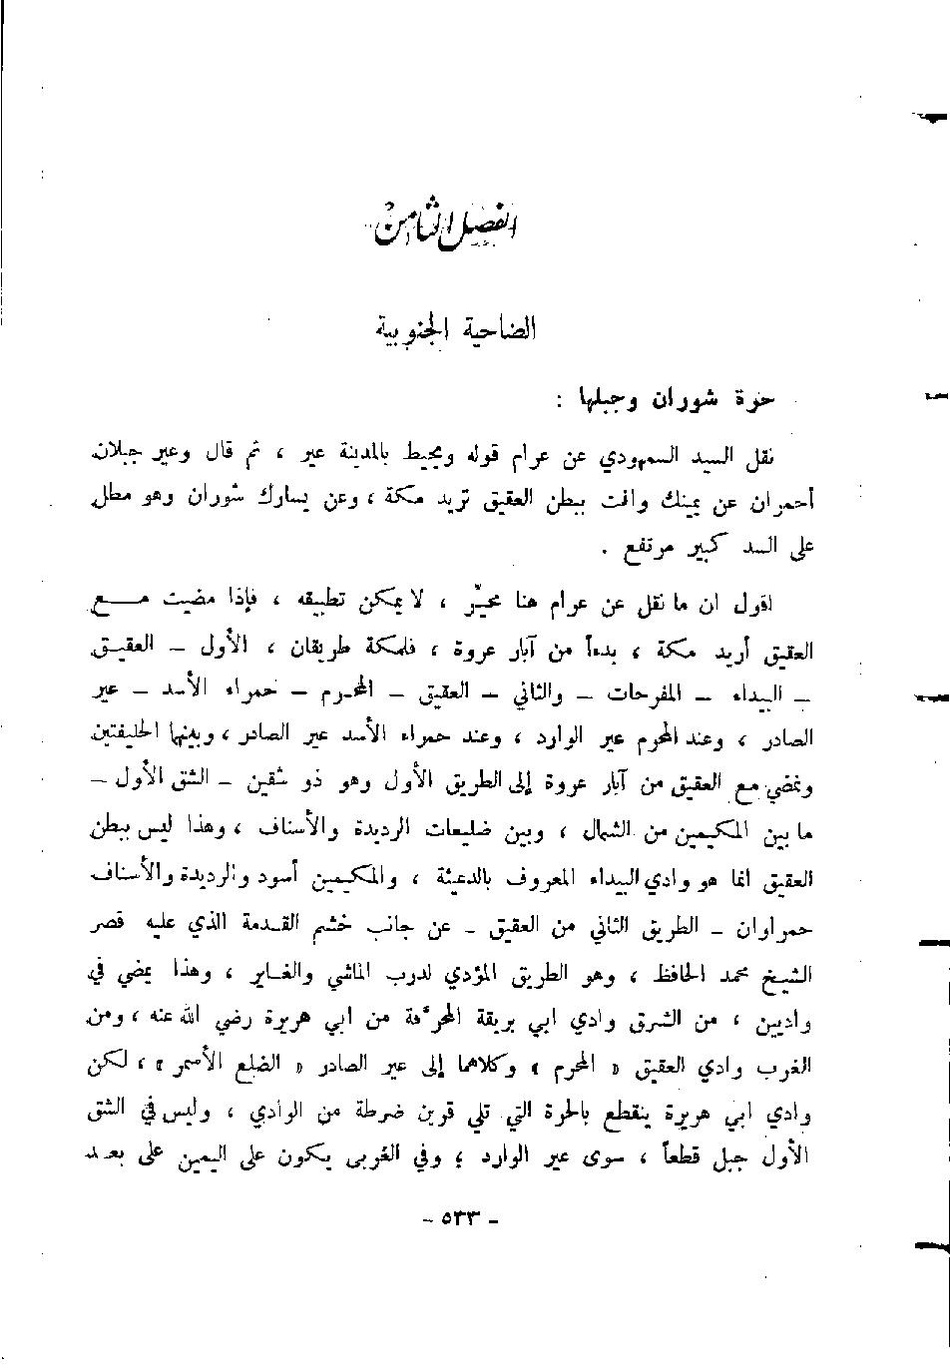 الفصل الثامن
الضاحية الجنوبية
حرة شوران وجبلها :
نقل السيد السمهودي عن عرام قوله ويحيط بالمدينة عير ، ثم قال وعير جبلان
أحمران عن يمينك وانت ببطن العقيق تريد مكة ، وعن يسارك شوران وهو مطل
على السد كبير مرتفع .
اقول ان ما نقل عن عوام هنا محيّر ، لا يمكن تطبيقه ، فإذا مضيت مــع
العقيق أريد مكة ، بدءاً من آبار عروة ، فلمكة طريقان ، الأول – العقيـق
– البيداء – المفرحات – والثاني – العقيق – المحرم – حمراء الأسد – عير
الصادر ، وعند المحرم عير الوارد ، وعند حمراء الأسد عير الصادر ، وبينهما الحليفتين
ونمضي مع العقيق من آبار عروة إلى الطريق الأول وهو ذو شقين – الشق الأول –
ما بين المكيمين من الشمال ، وبين ضليعات الرديدة والأسناف ، وهذا ليس ببطن
العقيق انما هو وادي البيداء المعروف بالدعيثة ، والمكيمين أسود والرديدة والأسناف
حمراوان – الطريق الثاني من العقيق – عن جانب خشم القـدمة الذي عليه قصر
الشيخ محمد الحافظ ، وهو الطريق المؤدي لدرب الماشي والغـاير ، وهذا يمضي في
واديين ، من الشرق وادي ابي بريقة المحرّفة من ابي هريرة رضي الله عنه ، ومن
الغرب وادي العقيق « المحرم » وكلاهما إلى عير الصادر « الضلع الأسمر » ، لكن
وادي ابي هريرة ينقطع بالحرة التي تلي قرين ضرطة من الوادي ، وليس في الشق
الأول جبل قطعاً ، سوى عير الوارد ؛ وفي الغربي يكون على اليمين على بعـد
– ٥٣٣ –